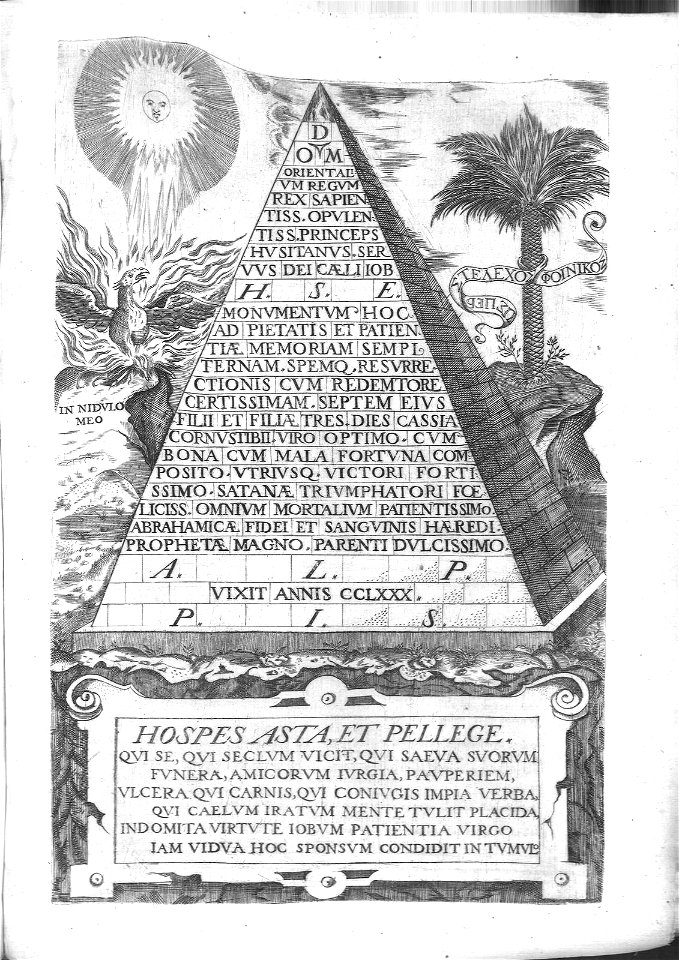 D
O M
ORIENTALI
VM REGVM
REX SAPIEN
TISS. OPVLEN
TISS. PRINCEPS
HVSITANVS. SER
VVS DEI CÆLI IOB
H. S. E.
MONVMENTVM HOC
AD PIETATIS ET PATIEN
TIÆ MEMORIAM SEMPI
TERNAM. SPEMQ. RESVRRE
CTIONIS CVM REDEMTORE
CERTISSIMAM. SEPTEM EIVS
FILII ET FILIÆ TRES. DIES CASSIA
CORNVSTIBII. VIRO OPTIMO. CVM
BONA CVM MALA FORTVNA COM
POSITO. VTRIVSQ. VICTORI FORTI
SSIMO. SATANÆ TRIVMPHATORI FOE
LICISS. OMNIVM MORTALIVM PATIENTISSIMO
ABRAHAMICÆ FIDEI ET SANGVINIS HÆREDI.
PROPHETÆ MAGNO. PARENTI DVLCISSIMO.
A. L. P.
VIXIT ANNIS CCLXXX.
P. I. S.
IN NIDVLO
MEO
ΣΤΕΛΕΧΟΣ ΦΟΙΝΙΚΟΣ
HOSPES ASTA, ET PELLEGE.
QVI SE, QVI SECLVM VICIT, QVI SAEVA SVORVM
FVNERA, AMICORVM IVRGIA, PAVPERIEM,
VLCERA QVI CARNIS, QVI CONIVGIS IMPIA VERBA,
QVI CAELVM IRATVM MENTE TVLIT PLACIDA,
INDOMITA VIRTVTE IOBVM PATIENTIA VIRGO
IAM VIDVA HOC SPONSVM CONDIDIT IN TVMVLO